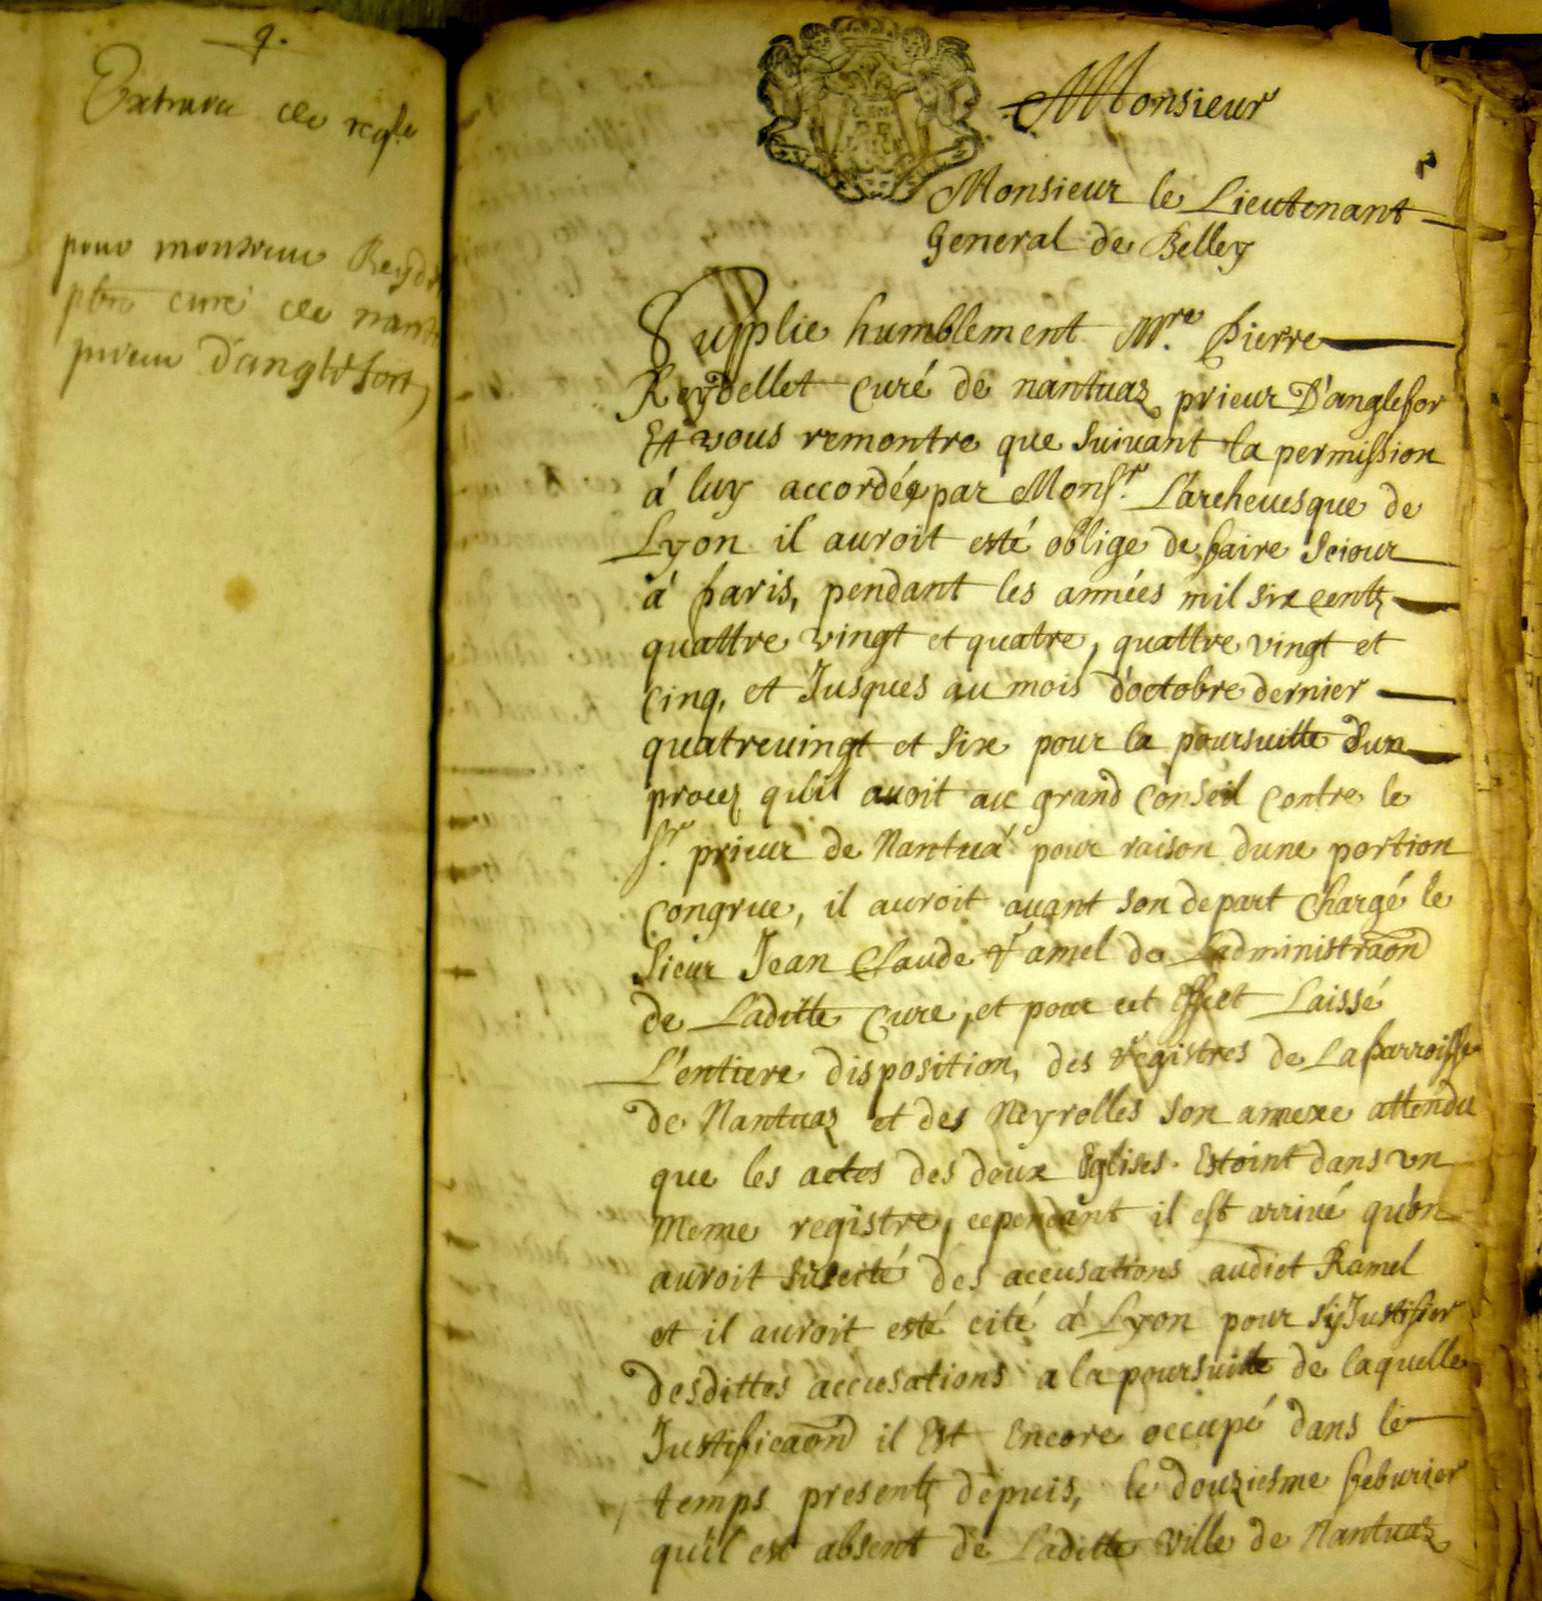 9.
Extrait de regle
pour monsieur Reyde
pbre curé de nant
prieur d'anglefort
Monsieur
Monsieur le Lieutenant
General de Belley
Supplie humblement Mre. Pierre
Reydellet Curé de nantuaz prieur D'anglefor
Et vous remontre que suivant la permission
á luy accordée par Monsr. L'archevesque de
Lyon il auroit esté obligé de faire Seiour
á Paris, pendant les années mil six centz
quattre vingt et quatre, quattre vingt et
Cinq, et Jusques au mois d'octobre dernier
quatreuingt et six pour la poursuitte d'un
procez qu'il auoit au grand Conseil Contre le
sr. prieur de Nantuax pour raison dune portion
Congrue, il auroit auant son depart Chargé le
Sieur Jean Claude Ramel de Ladministraõn
de Laditte Cure, et pour cet Effect Laissé
L'entiere disposition, des registres de La parroisse
de Nantuaz et des Neyrolles son annexe attendu
que les actes des deux Eglises Estoint dans vn
meme registre, cependant il est arriué qu'on
auroit suscité des accusations audict Ramel
et il auroit esté cité á Lyon pour s'y Justifier
desdittes accusations a la poursuitte de laquelle
Justificaõn il Est Encore occupé dans le
temps presentz depuis, le douziesme feburier
qu'il est absent de Laditte ville de Nantuaz